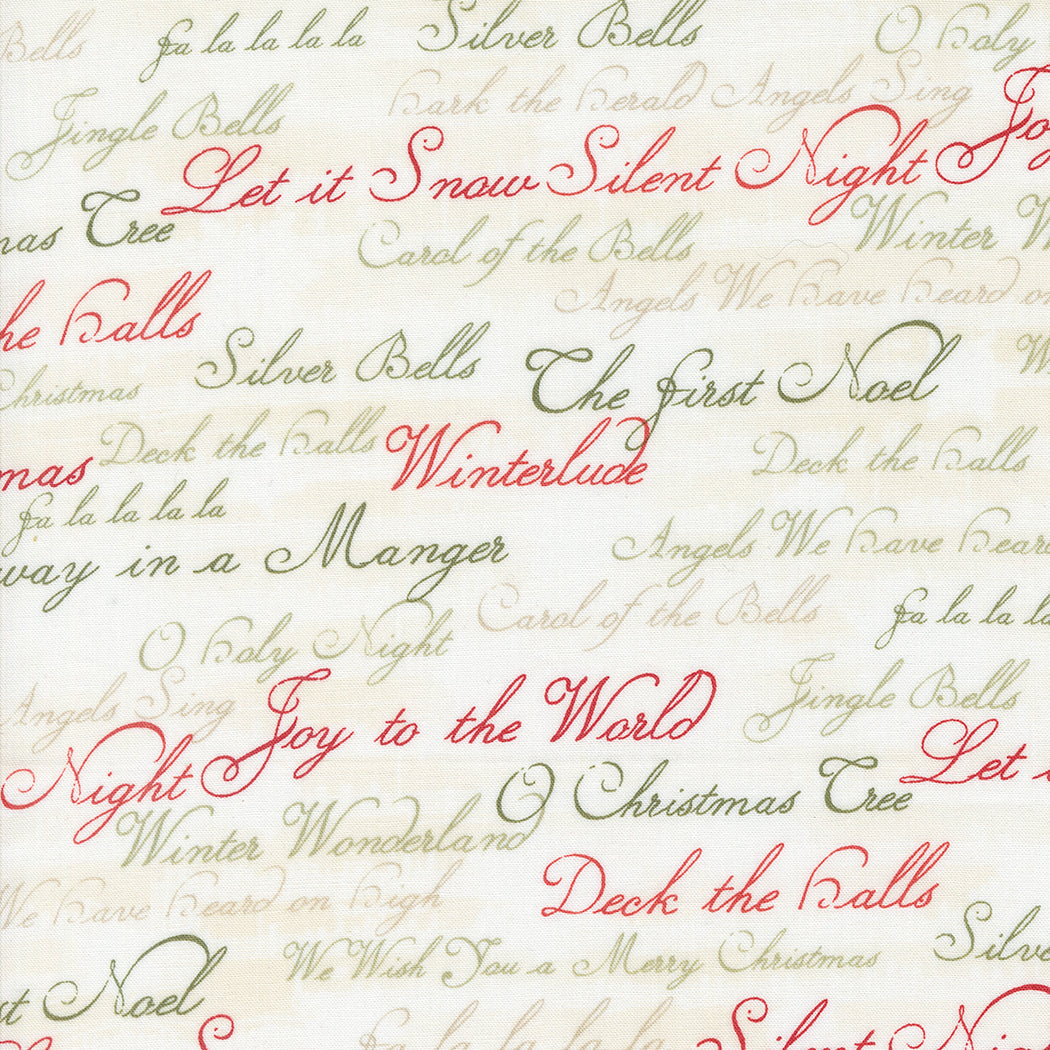 Bells fa la la la la Silver Bells O Holy
Hark the Herald Angels Sing
Jingle Bells
Let it Snow Silent Night Joy
mas Tree Carol of the Bells Winter W
Angels We Have Heard on
he Halls
Silver Bells The First Noel
Christmas
Deck the Halls Winterlude Deck the Halls
mas
fa la la la la
way in a Manger Angels We Have Heard
Carol of the Bells fa la la la
O Holy Night
Angels Sing Joy to the World Jingle Bells
Night Let i
O Christmas Tree
Winter Wonderland
We Have Heard on High Deck the Halls
We Wish You a Merry Christmas Silve
st Noel
fa la la la la Silent Night